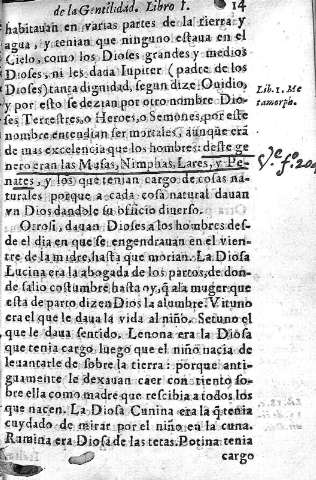 de la Gentilidad. Libro I. 14
habitauan en varias partes de la tierra y
agua, y tenian que ninguno estaua en el
Cielo, como los Dioses grandes y medios
Dioses, ni les daua Iupiter (padre de los
Dioses) tanta dignidad, segun dize Ouidio,
Lib. 1. Me
tamorph.
y por esto se dezian por otro nombre Dio-
ses, Terrestres, o Heroes, o Semones, por este
nombre entendian ser mortales, aunque erã
de mas excelencia que los hombres: deste ge
nero eran las Musas, Nimphas, Lares, y Pe-
nates, y los que tenian cargo de cosas na-
turales porque a cada cosa natural dauan
vn Dios dandole su officio diuerso.
Otrosi, dauan Dioses a los hombres des-
de el dia en que se engendrauan en el vien-
tre de la madre, hasta que morian. La Diosa
Lucina era la abogada de los partos, de don-
de salio costumbre hasta oy, q̃ a la muger que
està de parto dizen Dios la alumbre. Vituno
era el que le daua la vida al niño. Setuno el
que le daua sentido. Lenona era la Diosa
que tenia cargo luego que el niño nacia de
leuantarle de sobre la tierra: porque anti-
guamente le dexauan caer con tiento so-
bre ella como madre que rescibia a todos los
que nacen. La Diosa Cunina era la q̃ tenia
cuydado de mirar por el niño en la cuna.
Rumina era Diosa de las tetas. Potina tenia
cargo